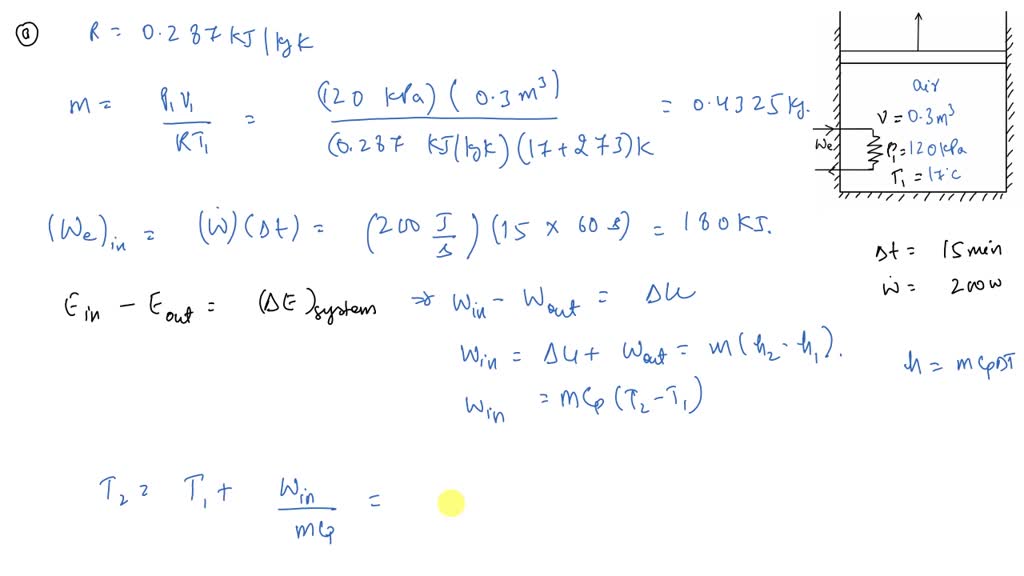 a R = 0.287 KJ/kg K
m = P₁V₁ / RT₁ = (120 kPa) (0.3 m³) / (0.287 KJ/kg K) (17 + 273) K = 0.4325 kg.
air
V = 0.3 m³
We
P₁ = 120 kPa
T₁ = 17°C
(We)in = (Ẇ) (Δt) = (200 J/s) (15 × 60 s) = 180 KJ.
Δt = 15 min
Ẇ = 200 W
Ein − Eout = (ΔE)system ⇒ Win − Wout = ΔU
Win = ΔU + Wout = m (h₂ − h₁).
h = m Cp ΔT
Win = m Cp (T₂ − T₁)
T₂ = T₁ + Win / m Cp =